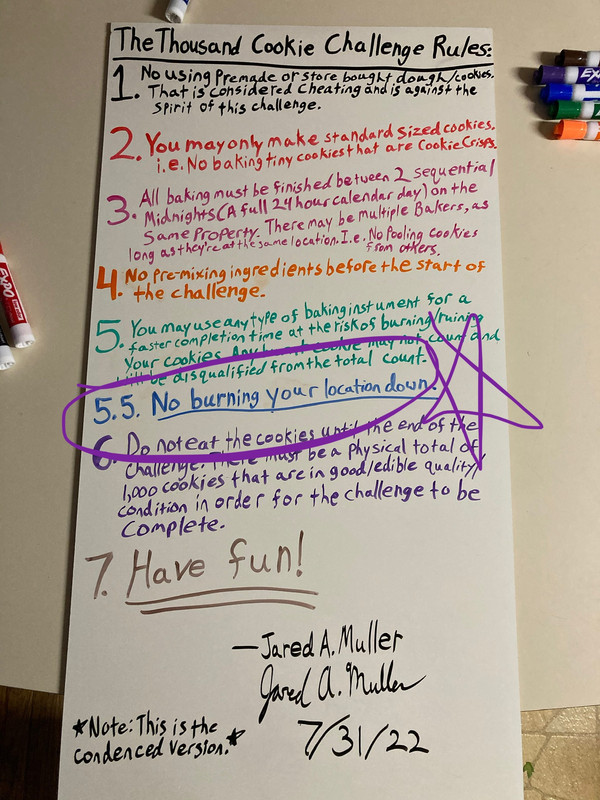 The Thousand Cookie Challenge Rules:
1. No using Premade or store bought dough/cookies.
That is considered Cheating and is against the
Spirit of this challenge.
2. You may only make standard sized cookies.
i.e. No baking tiny cookies that are Cookie Crisps.
3. All baking must be finished between 2 sequential
Midnights (A full 24 hour calendar day) on the
Same Property. There may be multiple Bakers, as
long as they're at the same location. I.e. No Pooling cookies
from others.
4. No pre-mixing ingredients before the start of
the challenge.
5. You may use any type of baking instument for a
faster completion time at the risk of burning/ruining
Your cookies. Any burnt cookie may not count and
will be disqualified from the total count.
5.5. No burning your location down!
6. Do not eat the cookies until the end of the
Challenge. There must be a physical total of
1,000 cookies that are in good/edible quality/
condition in order for the challenge to be
Complete.
7. Have fun!
—Jared A. Muller
Jared A. Muller
7/31/22
*Note: This is the
condenced version.*
EXPO
EXPO